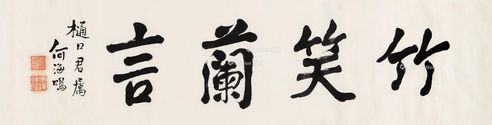 竹笑蘭言
樋口君属
何海鳴